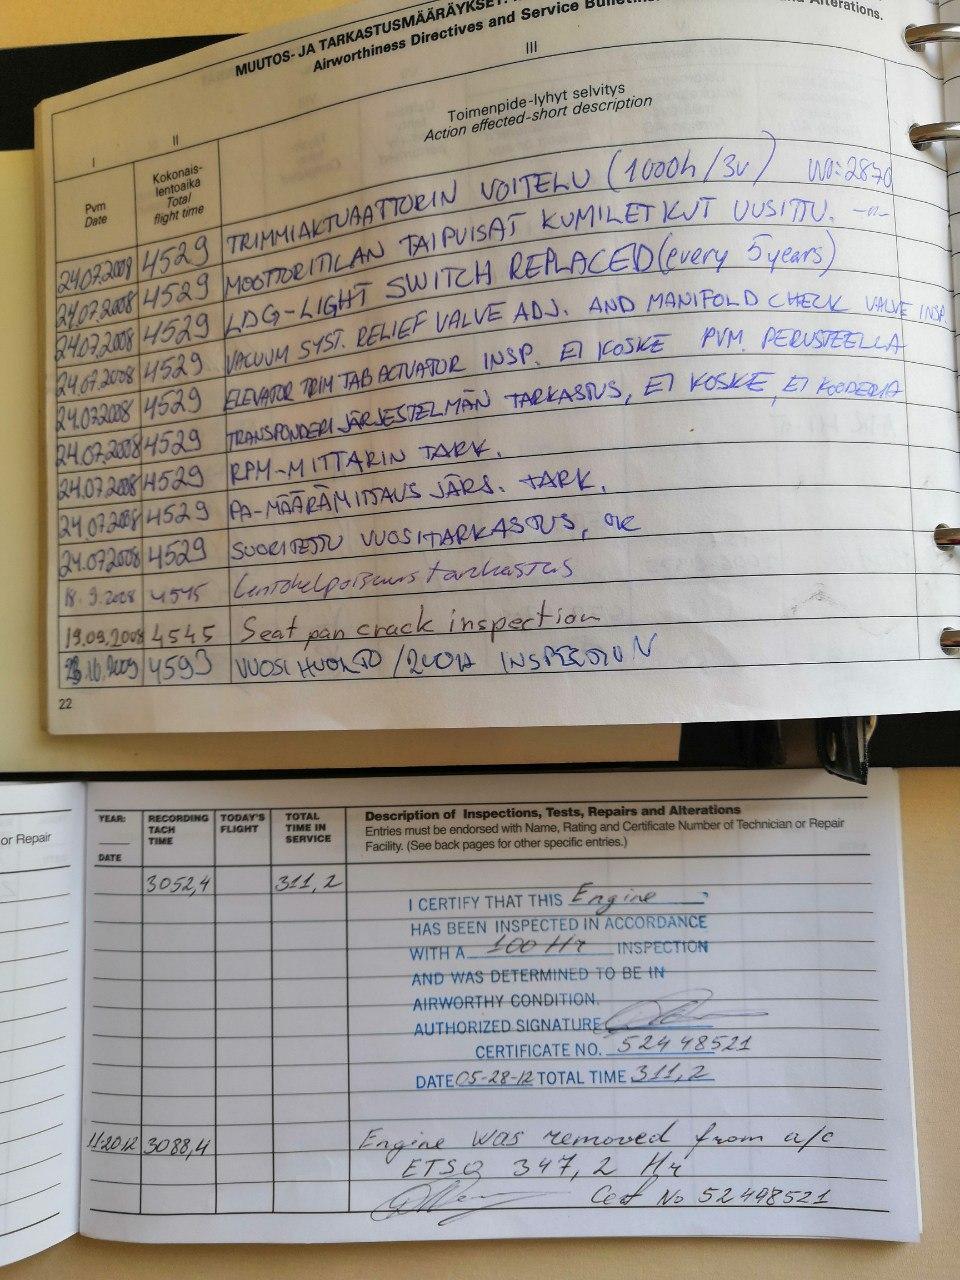 MUUTOS- JA TARKASTUSMÄÄRÄYKSET.
Airworthiness Directives and Service Bulletins and Alterations.
I II III
Pvm
Date
Kokonais-
lentoaika
Total
flight time
Toimenpide-lyhyt selvitys
Action effected-short description
24.07.2008 4529 TRIMMIAKTUAATTORIN VOITELU (1000h/3v) WO:2870
24.07.2008 4529 MOOTTORITILAN TAIPUISAT KUMILETKUT UUSITTU. -"-
24.07.2008 4529 LDG-LIGHT SWITCH REPLACED (every 5 years)
24.07.2008 4529 VACUUM SYST. RELIEF VALVE ADJ. AND MANIFOLD CHECK VALVE INSP.
24.07.2008 4529 ELEVATOR TRIM TAB ACTUATOR INSP. EI KOSKE PVM. PERUSTEELLA
24.07.2008 4529 TRANSPONDERIJÄRJESTELMÄN TARKASTUS, EI KOSKE, EI KOODERIA
24.07.2008 4529 RPM-MITTARIN TARK.
24.07.2008 4529 PA-MÄÄRÄMITTAUS JÄRJ. TARK.
24.07.2008 4529 SUORITETTU VUOSITARKASTUS, OK
18.9.2008 4545 Lentokelpoisuustarkastus
19.09.2008 4545 Seat pan crack inspection
.10.2009 4593 VUOSIHUOLTO / 200H INSPECTION
22
or Repair
YEAR:
DATE
RECORDING
TACH
TIME
TODAY'S
FLIGHT
TOTAL
TIME IN
SERVICE
Description of Inspections, Tests, Repairs and Alterations
Entries must be endorsed with Name, Rating and Certificate Number of Technician or Repair
Facility. (See back pages for other specific entries.)
3052,4 311,2
I CERTIFY THAT THIS Engine
HAS BEEN INSPECTED IN ACCORDANCE
WITH A 100 Hr INSPECTION
AND WAS DETERMINED TO BE IN
AIRWORTHY CONDITION.
AUTHORIZED SIGNATURE
CERTIFICATE NO. 52448521
DATE 05-28-12 TOTAL TIME 311,2
11.2012 3088,4 Engine was removed from a/c
ETSO 347,2 Hr
Cert No 52448521